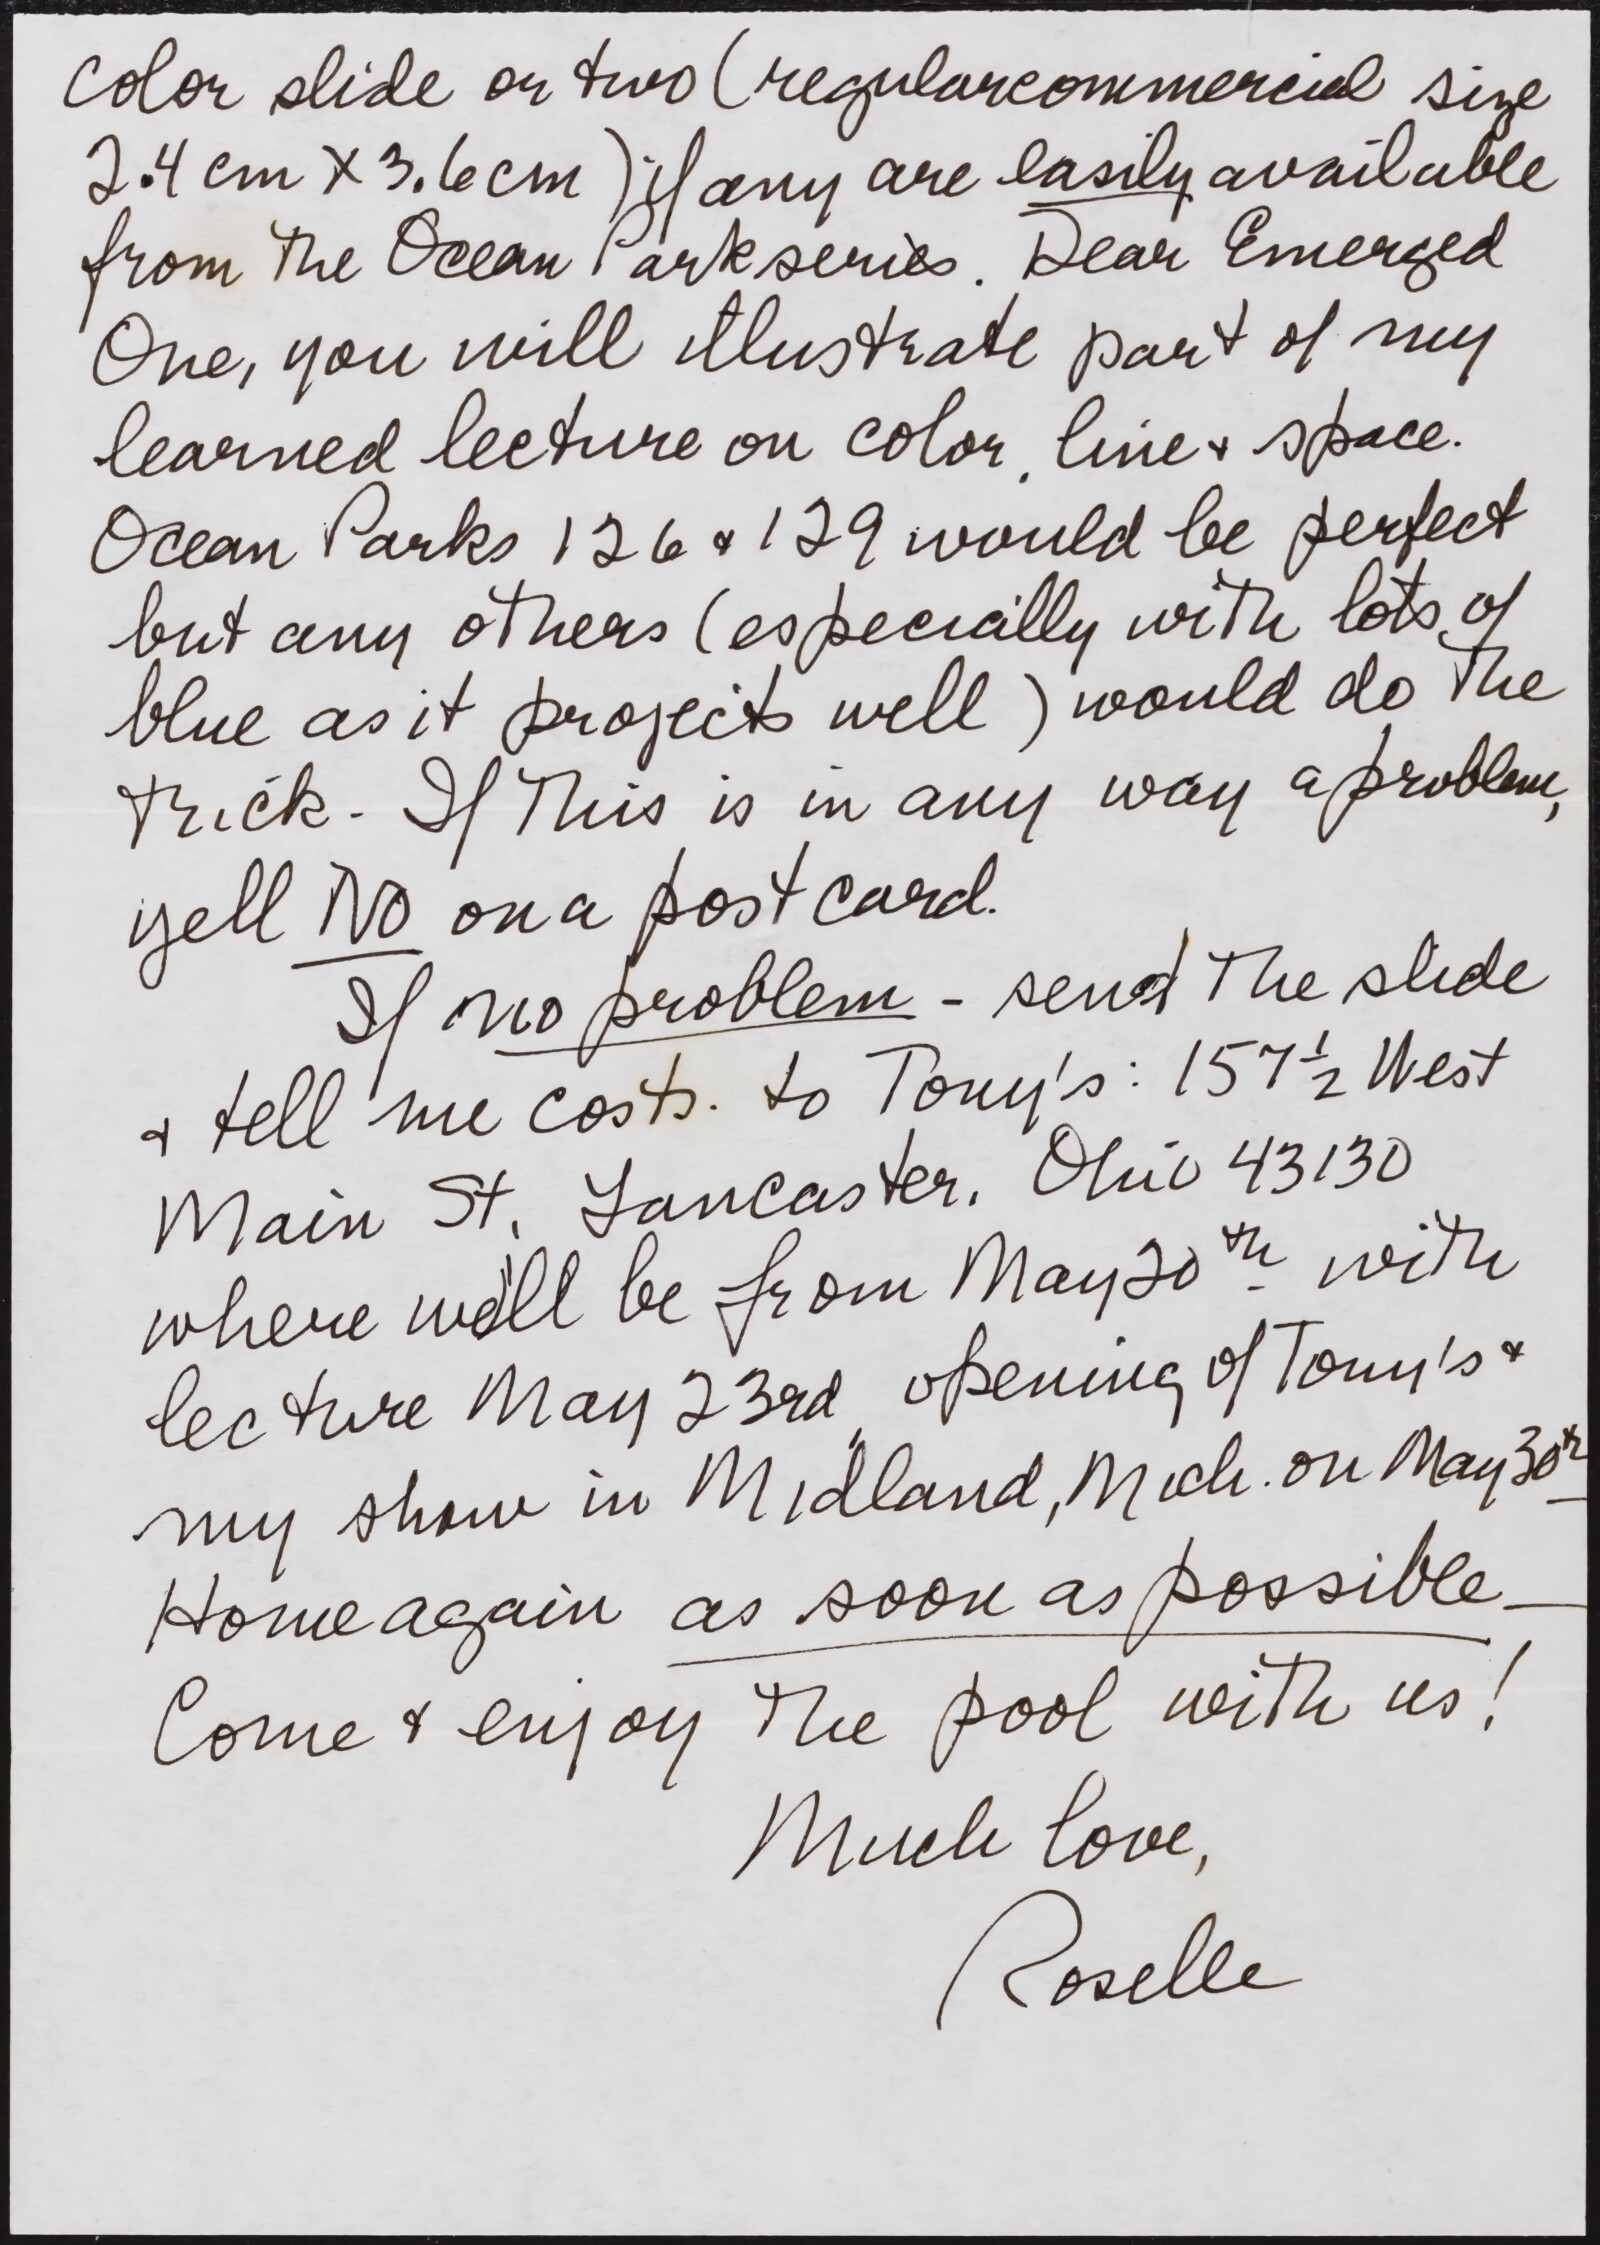 color slide or two (regular commercial size
2.4 cm X 3.6 cm) if any are easily available
from the Ocean Park series. Dear Emerged
One, you will illustrate part of my
learned lecture on color, line & space.
Ocean Parks 126 & 129 would be perfect
but any others (especially with lots of
blue as it projects well) would do the
trick. If this is in any way a problem,
yell NO on a post card.
If no problem - send the slide
& tell me costs. to Tony's: 157 1/2 West
Main St, Lancaster, Ohio 43130
where we'll be from May 20th with
lecture May 23rd, opening of Tony's &
my show in Midland, Mich. on May 30th
Home again as soon as possible —
Come & enjoy the pool with us!
Much love,
Roselle